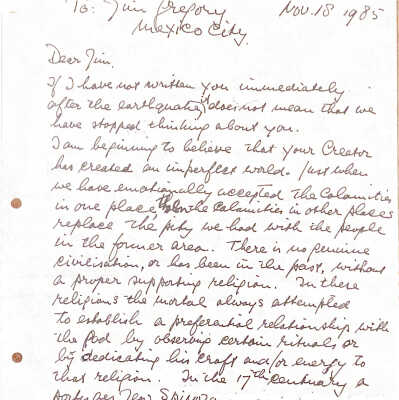 To: Jim Gregory Nov. 18 1985
Mexico City.
Dear Jim.
If I have not written you immediately
after the earthquake, it does not mean that we
have stopped thinking about you.
I am beginning to believe that your Creator
has created an imperfect world. Just when
we have emotionally accepted the calamities
in one place then the calamities in other places
replace the pity we had with the people
in the former area. There is no genuine
civilisation, or has been in the past, without
a proper supporting religion. In these
religions the mortal always attempted
to establish a preferential relationship with
the God by observing certain rituals, or
by dedicating his craft and/or energy to
that religion. In the 17th century a
Portugees Jew Spinoza